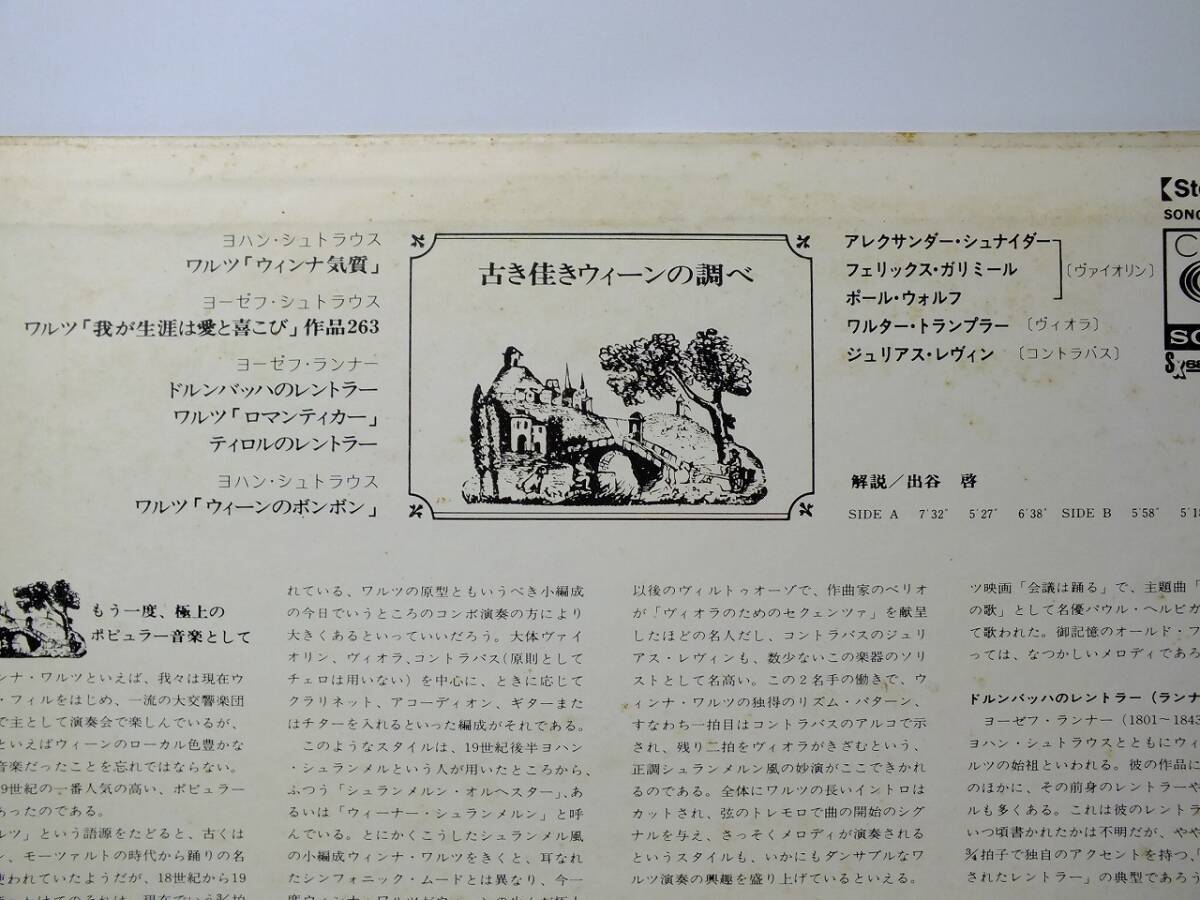 ヨハン・シュトラウス
ワルツ「ウィンナ気質」
ヨーゼフ・シュトラウス
ワルツ「我が生涯は愛と喜こび」作品263
ヨーゼフ・ランナー
ドルンバッハのレントラー
ワルツ「ロマンティカー」
ティロルのレントラー
ヨハン・シュトラウス
ワルツ「ウィーンのボンボン」
古き佳きウィーンの調べ
アレクサンダー・シュナイダー
フェリックス・ガリミール
ポール・ウォルフ
〔ヴァイオリン〕
ワルター・トランプラー〔ヴィオラ〕
ジュリアス・レヴィン〔コントラバス〕
解説／出谷 啓
SIDE A 7'32" 5'27" 6'38" SIDE B 5'58" 5'18
もう一度、極上の
ポピュラー音楽として
ンナ・ワルツといえば、我々は現在ウ
・フィルをはじめ、一流の大交響楽団
で主として演奏会で楽しんでいるが、
といえばウィーンのローカル色豊かな
音楽だったことを忘れてはならない。
9世紀の一番人気の高い、ポピュラー
あったのである。
ルツ」という語源をたどると、古くは
ン、モーツァルトの時代から踊りの名
使われていたようだが、18世紀から19
れている、ワルツの原型ともいうべき小編成
の今日でいうところのコンボ演奏の方により
大きくあるといっていいだろう。大体ヴァイ
オリン、ヴィオラ、コントラバス(原則として
チェロは用いない)を中心に、ときに応じて
クラリネット、アコーディオン、ギターまた
はチターを入れるといった編成がそれである。
このようなスタイルは、19世紀後半ヨハン
・シュランメルという人が用いたところから、
ふつう「シュランメルン・オルヘスター」、あ
るいは「ウィーナー・シュランメルン」と呼
んでいる。とにかくこうしたシュランメル風
の小編成ウィンナ・ワルツをきくと、耳なれ
たシンフォニック・ムードとは異なり、今一
以後のヴィルトゥオーゾで、作曲家のベリオ
が「ヴィオラのためのセクェンツァ」を献呈
したほどの名人だし、コントラバスのジュリ
アス・レヴィンも、数少ないこの楽器のソリ
ストとして名高い。この2名手の働きで、ウ
ィンナ・ワルツの独得のリズム・パターン、
すなわち一拍目はコントラバスのアルコで示
され、残り二拍をヴィオラがきざむという、
正調シュランメルン風の妙演がここできかれ
るのである。全体にワルツの長いイントロは
カットされ、弦のトレモロで曲の開始のシグ
ナルを与え、さっそくメロディが演奏される
というスタイルも、いかにもダンサブルなワ
ルツ演奏の興趣を盛り上げているといえる。
ツ映画「会議は踊る」で、主題曲「
の歌」として名優パウル・ヘルビガ
て歌われた。御記憶のオールド・フ
っては、なつかしいメロディであろ
ドルンバッハのレントラー(ランナ
ヨーゼフ・ランナー(1801～1843
ヨハン・シュトラウスとともにウィ
ルツの始祖といわれる。彼の作品に
のほかに、その前身のレントラーや
ルも多くある。これは彼のレントラ
いつ頃書かれたかは不明だが、やや
¾拍子で独自のアクセントを持つ、「
されたレントラー」の典型であろう